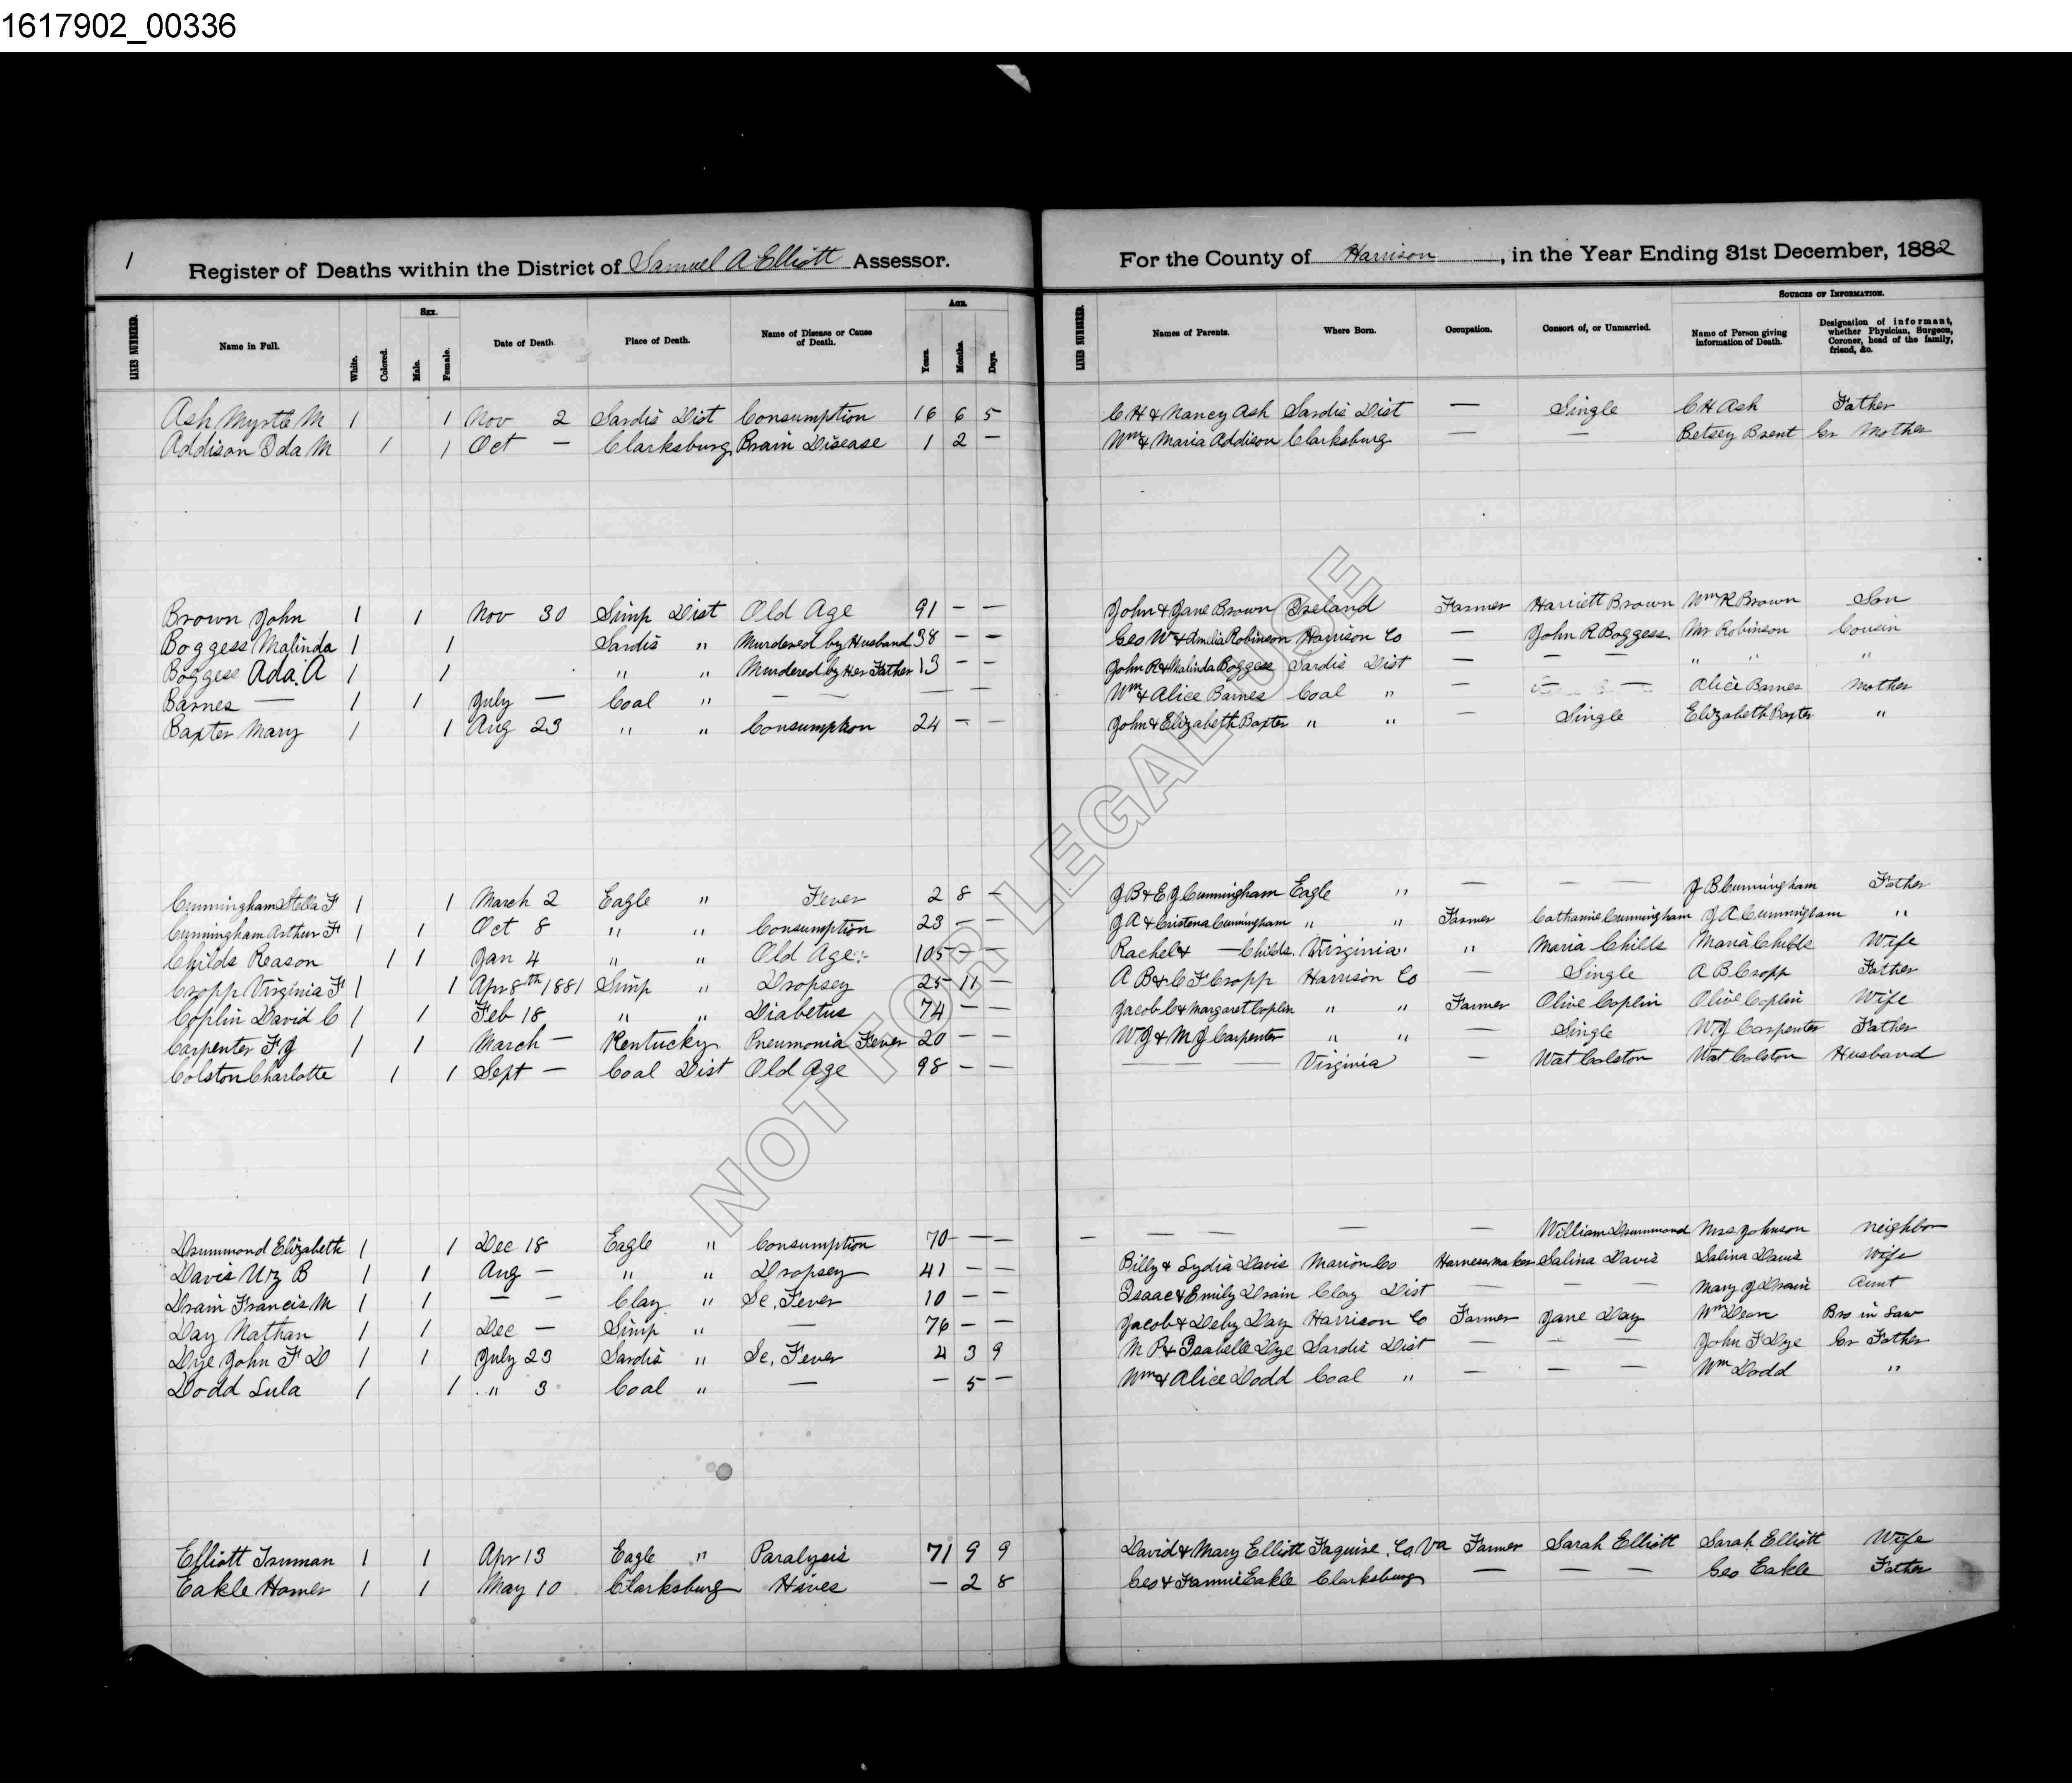 1617902_00336
1 Register of Deaths within the District of Samuel A Elliott Assessor. For the County of Harrison, in the Year Ending 31st December, 1882
LINES NUMBERED. Name in Full. White. Colored. Sex. Male. Female. Date of Death. Place of Death. Name of Disease or Cause of Death. Age. Years. Months. Days. LINES NUMBERED. Names of Parents. Where Born. Occupation. Consort of, or Unmarried. Sources of Information. Name of Person giving information of Death. Designation of informant, whether Physician, Surgeon, Coroner, head of the family, friend, &c.
Ash Myrtle M 1 1 Nov 2 Sardis Dist Consumption 16 6 5 C H & Nancy Ash Sardis Dist — Single C H Ash Father
Addison Ida M 1 1 Oct — Clarksburg Brain Disease 1 2 — Wm & Maria Addison Clarksburg — — Betsey Brent Gr Mother
Brown John 1 1 Nov 30 Simp Dist Old Age 91 — — John & Jane Brown Ireland Farmer Harriett Brown Wm R Brown Son
Boggess Malinda 1 1 Sardis " Murdered by Husband 38 — — Geo W & Amelia Robinson Harrison Co — John R Boggess Mr Robinson Cousin
Boggess Ada. A 1 1 " " Murdered by Her Father 13 — — John R & Malinda Boggess Sardis Dist — — — " " "
Barnes — 1 1 July — Coal " — — — — — Wm & Alice Barnes Coal " — — — Alice Barnes Mother
Baxter Mary 1 1 Aug 23 " " Consumption 24 — — John & Elizabeth Baxter " " — Single Elizabeth Baxter "
Cunningham Stella F 1 1 March 2 Eagle " Fever 2 8 — J B & E J Cunningham Eagle " — — — J B Cunningham Father
Cunningham Arthur F 1 1 Oct 8 " " Consumption 23 — — J A & Cristena Cunningham " " Farmer Catharine Cunningham J A Cunningham "
Childs Reason 1 1 Jan 4 " " Old Age 105 — — Rachel & — Childs Virginia " " Maria Childs Maria Childs Wife
Cropp Virginia F 1 1 Apr 8th 1881 Simp " Dropsey 25 11 — A B & C F Cropp Harrison Co — Single A B Cropp Father
Coplin David C 1 1 Feb 18 " " Diabetus 74 — — Jacob C & Margaret Coplin " " Farmer Olive Coplin Olive Coplin Wife
Carpenter F J 1 1 March — Kentucky Pneumonia Fever 20 — — W J & M J Carpenter " " — Single W J Carpenter Father
Colston Charlotte 1 1 Sept — Coal Dist Old Age 98 — — — Virginia — Wat Colston Wat Colston Husband
Drummond Elizabeth 1 1 Dec 18 Eagle " Consumption 70 — — — — — — — William Drummond Mrs Johnson neighbor
Davis Uz B 1 1 Aug — " " Dropsey 41 — — Billy & Lydia Davis Marion Co Harness maker Salina Davis Salina Davis Wife
Drain Francis M 1 1 — — Clay " Sc. Fever 10 — — Isaac & Emily Drain Clay Dist — — — Mary J Drain Aunt
Day Nathan 1 1 Dec — Simp " — 76 — — Jacob & Deby Day Harrison Co Farmer Jane Day Wm Dean Bro in Law
Dye John F D 1 1 July 23 Sardis " Sc. Fever 4 3 9 M P & Isabelle Dye Sardis Dist — — — John F Dye Gr Father
Dodd Lula 1 1 " 3 Coal " — — 5 — Wm & Alice Dodd Coal " — — — Wm Dodd "
Elliott Truman 1 1 Apr 13 Eagle " Paralysis 71 9 9 David & Mary Elliott Faquire. Co, Va Farmer Sarah Elliott Sarah Elliott Wife
Eakle Homer 1 1 May 10 Clarksburg Hives — 2 8 Geo & Fannie Eakle Clarksburg — — — Geo Eakle Father
NOT FOR LEGAL USE